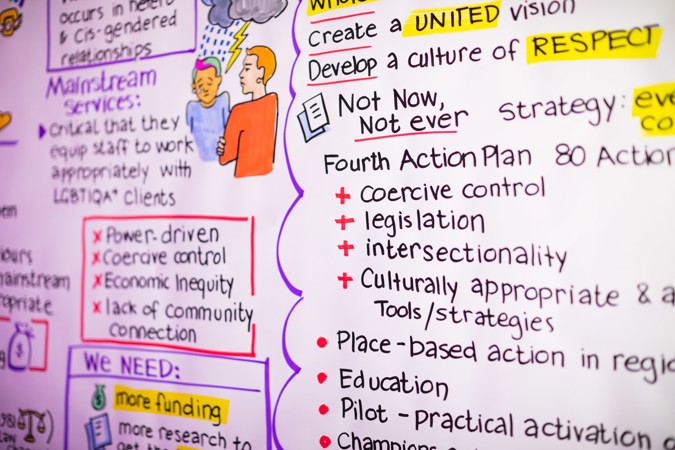 occurs in hetero
& Cis-gendered
relationships
Mainstream
Services:
Critical that they
equip staff to work
appropriately with
LGBTIQA+ clients
x Power-driven
x Coercive control
x Economic Inequity
x lack of community
connection
mainstream
WE NEED:
more funding
more research to
get the
Create a UNITED vision
Develop a culture of RESPECT
Not Now,
Not ever strategy:
Fourth Action Plan 80 Action
+ coercive control
+ legislation
+ intersectionality
+ Culturally appropriate &
Tools/strategies
• Place-based action in regio
• Education
• Pilot - practical activation
• Champions